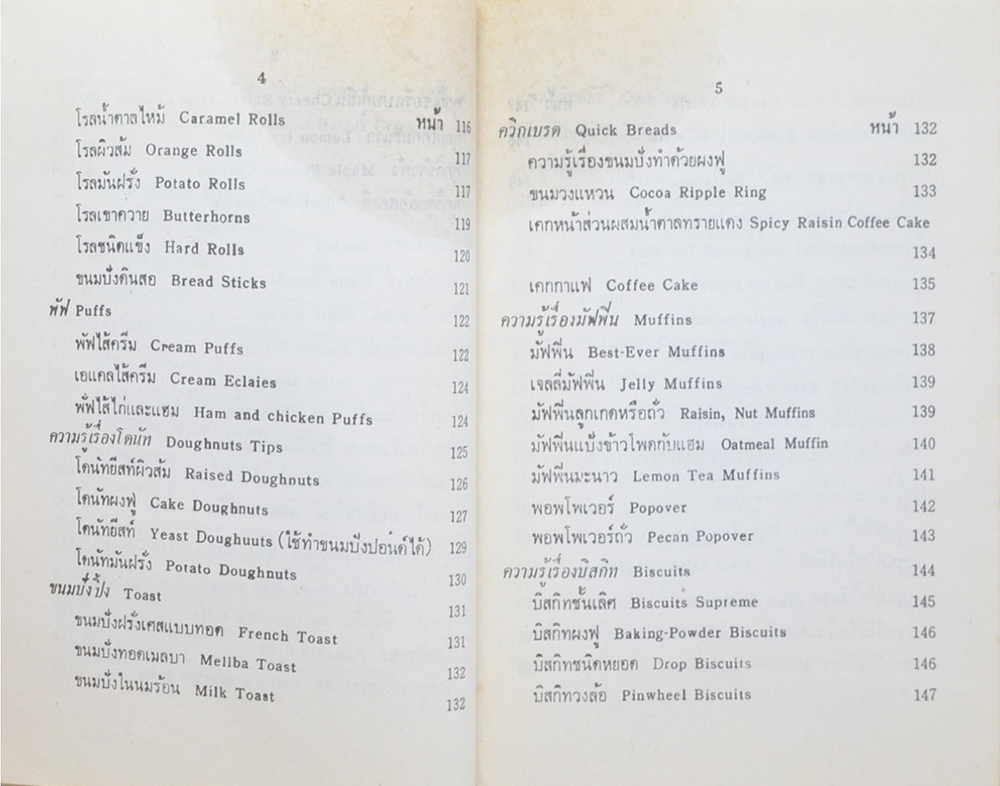 4
โรลน้ำตาลไหม้ Caramel Rolls หน้า 116
โรลผิวส้ม Orange Rolls 117
โรลมันฝรั่ง Potato Rolls 117
โรลเขาควาย Butterhorns 119
โรลชนิดแข็ง Hard Rolls 120
ขนมปังดินสอ Bread Sticks 121
พัฟ Puffs 122
พัฟไส้ครีม Cream Puffs 122
เอแคลไส้ครีม Cream Eclaies 124
พัฟไส้ไก่และแฮม Ham and chicken Puffs 124
ความรู้เรื่องโดนัท Doughnuts Tips 125
โดนัทยีสท์ผิวส้ม Raised Doughnuts 126
โดนัทผงฟู Cake Doughnuts 127
โดนัทยีสท์ Yeast Doughuuts (ใช้ทำขนมปังปอนด์ได้) 129
โดนัทมันฝรั่ง Potato Doughnuts 130
ขนมปังปิ้ง Toast 131
ขนมปังฝรั่งเศสแบบทอด French Toast 131
ขนมปังทอดเมลบา Mellba Toast 132
ขนมปังในนมร้อน Milk Toast 132
5
ควิกเบรด Quick Breads หน้า 132
ความรู้เรื่องขนมปังทำด้วยผงฟู 132
ขนมวงแหวน Cocoa Ripple Ring 133
เคกหน้าส่วนผสมน้ำตาลทรายแดง Spicy Raisin Coffee Cake
134
เคกกาแฟ Coffee Cake 135
ความรู้เรื่องมัฟฟิ่น Muffins 137
มัฟฟิ่น Best-Ever Muffins 138
เจลลี่มัฟฟิ่น Jelly Muffins 139
มัฟฟิ่นลูกเกดหรือถั่ว Raisin, Nut Muffins 139
มัฟฟิ่นแป้งข้าวโพดกับแฮม Oatmeal Muffin 140
มัฟฟิ่นมะนาว Lemon Tea Muffins 141
พอพโพเวอร์ Popover 142
พอพโพเวอร์ถั่ว Pecan Popover 143
ความรู้เรื่องบิสกิท Biscuits 144
บิสกิทชั้นเลิศ Biscuits Supreme 145
บิสกิทผงฟู Baking-Powder Biscuits 146
บิสกิทชนิดหยอด Drop Biscuits 146
บิสกิทวงล้อ Pinwheel Biscuits 147